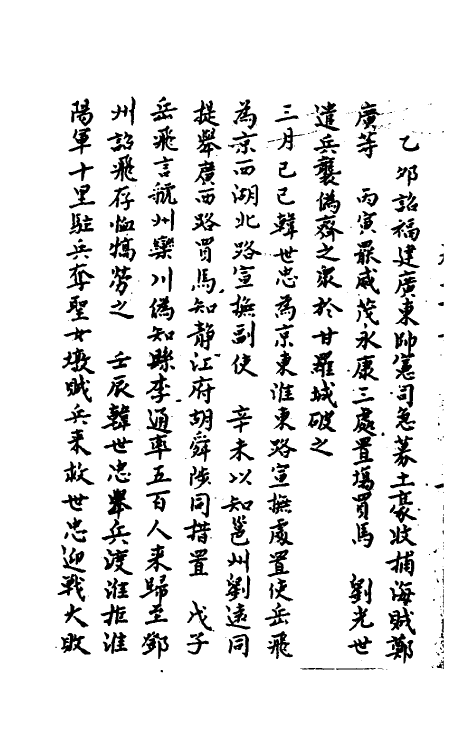 乙卯詔福建廣東帥憲司急募土豪收捕海賊鄭
廣等　丙寅嚴威茂永康三處置場買馬　劉光世
遣兵襲偽齊之衆於甘羅城破之
三月己巳韓世忠為京東淮東路宣撫處置使岳飛
為京西湖北路宣撫副使　辛未以知邕州劉遠同
提舉廣西路買馬知静江府胡舜陟同措置　戊子
岳飛言虢州欒川偽知縣李通率五百人來歸至鄧
州詔飛存恤犒勞之　壬辰韓世忠舉兵渡淮拒淮
陽軍十里駐兵奪聖女墩賊兵来救世忠迎戰大敗